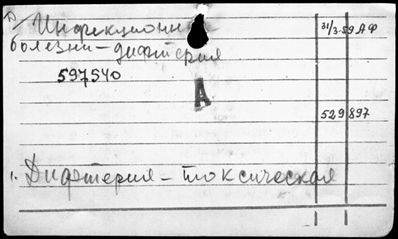 Инфекционн 31/3-59 АФ
болезни – дифтерия
597540
А
529 897
1. Дифтерия – токсическая